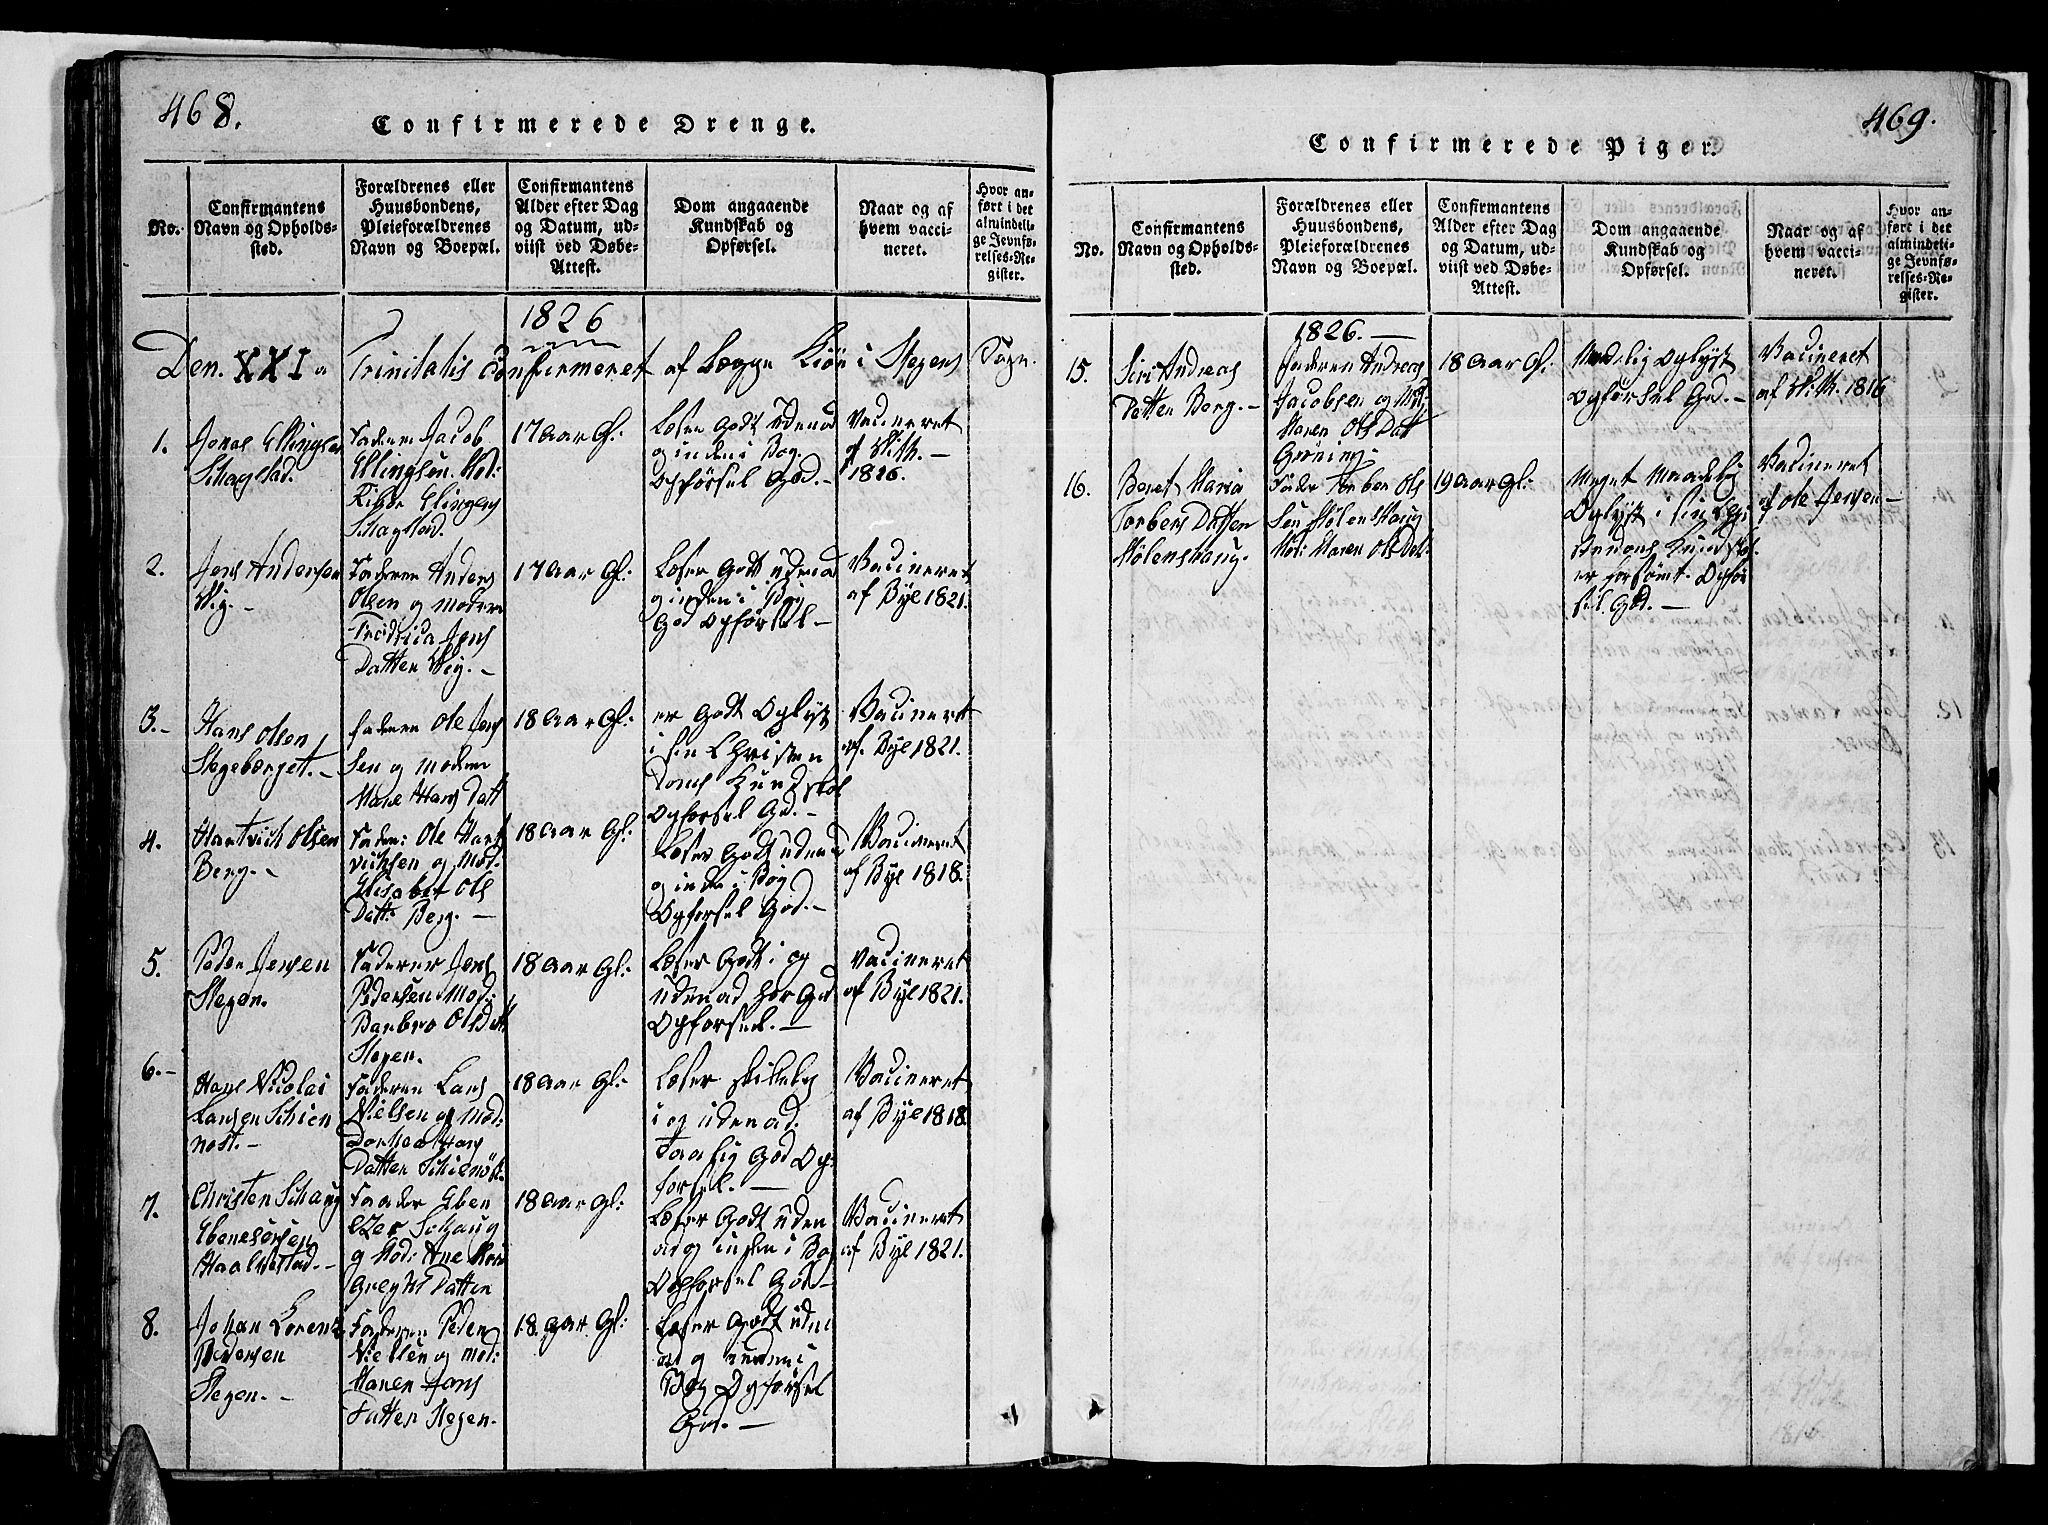 468.
Confirmerede Drenge.
No.
Confirmantens
Navn og Opholds-
sted.
Forældrenes eller
Huusbondens,
Pleieforældrenes
Navn og Boepæl.
Confirmantens
Alder efter Dag
og Datum, ud-
viist ved Døbe-
Attest.
Dom angaaende
Kundskab og
Opførsel.
Naar og af
hvem vacci-
neret.
Hvor an-
ført i det
almindeli-
ge Jevnfø-
relses-Re-
gister.
1826
Den XXI Trinitatis Confirmeret af i Stegens Sogn.
1.
Jonas Ellingsen
Schagstad.
Faderen Jacob
Ellingsen. Mod:
Ellingens
Schagstad.
17 Aar Gl:
Læser Godt udenad
og inden i Bog.
Opførsel God. –
Vacineret
af
1816.
2.
Jens Andersen
Faderen Anders
Olsen og Modern
Fredrica Jens
Datter
17 Aar Gl:
Læser Godt udenad
og inden i Bog
God Opførsel –
Vacineret
af Bye 1821.
3. –
Hans Olsen
Stegeberget. –
Faderen Ole Jens
Sen og moderen
Hans Datt
18 Aar Gl:
er Godt Oplyst
i sin Christen
doms Kundskab
Opførsel God. –
Vacineret
af Bye 1821.
4.
Hartvich Olsen
Berg. –
Fader: Ole Hart
vichsen og Mod.
Elisabet Ols
Datt: Berg. –
18 Aar Gl:
Læser Godt udenad
og inden i Bog
Opførsel God. –
Vacineret
af Bye 1818.
5.
Peder Jensen
Stegen.
Faderen Jens
Pedersen Mod:
Barbro Ols Datt
Stegen.
18 Aar Gl:
Læser Godt i og
udenad har God
Opførsel. –
Vacineret
af Bye 1821.
6. –
Hans Nicolai
Larsen Schien
nost. –
Faderen Lars
Nielsen og Mod:
Dorthea Hans
Datter
18 Aar Gl:
Læser skikkelig
i og udenad.
God Op
førsel. –
Vacineret
af Bye 1818.
7.
Christen Schaug
Ebenesersen
Faader Eben
ezer Schaug
og Mod: Ane
Datter
18 Aar Gl:
Læser Godt uden
ad og inden i Bog
Opførsel God –
Vacineret
af Bye 1821.
8.
Johan Lorents
Pedersen
Stegen. –
Faderen Peder
Nielsen og mod:
Maren Jans
Datter Stegen.
18 Aar Gl:
Læser Godt uden
ad og inden i
Bog Opførsel
God. –
469.
Confirmerede Piger.
No.
Confirmantens
Navn og Opholds-
sted.
Forældrenes eller
Huusbondens,
Pleieforældrenes
Navn og Boepæl.
Confirmantens
Alder efter Dag
og Datum, ud-
viist ved Døbe-
Attest.
Dom angaaende
Kundskab og
Opførsel.
Naar og af
hvem vacci-
neret.
Hvor an-
ført i det
almindeli-
ge Jevnfø-
relses-Re-
gister.
1826. –
15.
Siri Andreas
Datter Berg. –
Faderen Andreas
Jacobsen og Mod:
Maren Ols Datt
Grøning.
18 Aar Gl:
Maadelig Oplyst
Opførsel God. –
Vacineret
af 1816
16.
Beret Maria
Torbers Datter
Fader Torber Ols
Sen
Mod: Maren Ols Dat:
19 Aar Gl:
Meget Maadelig
Oplyst i sin
Kundskab
er forsømt. Opfør
sel God. –
Vacineret
af Ole Jensen –